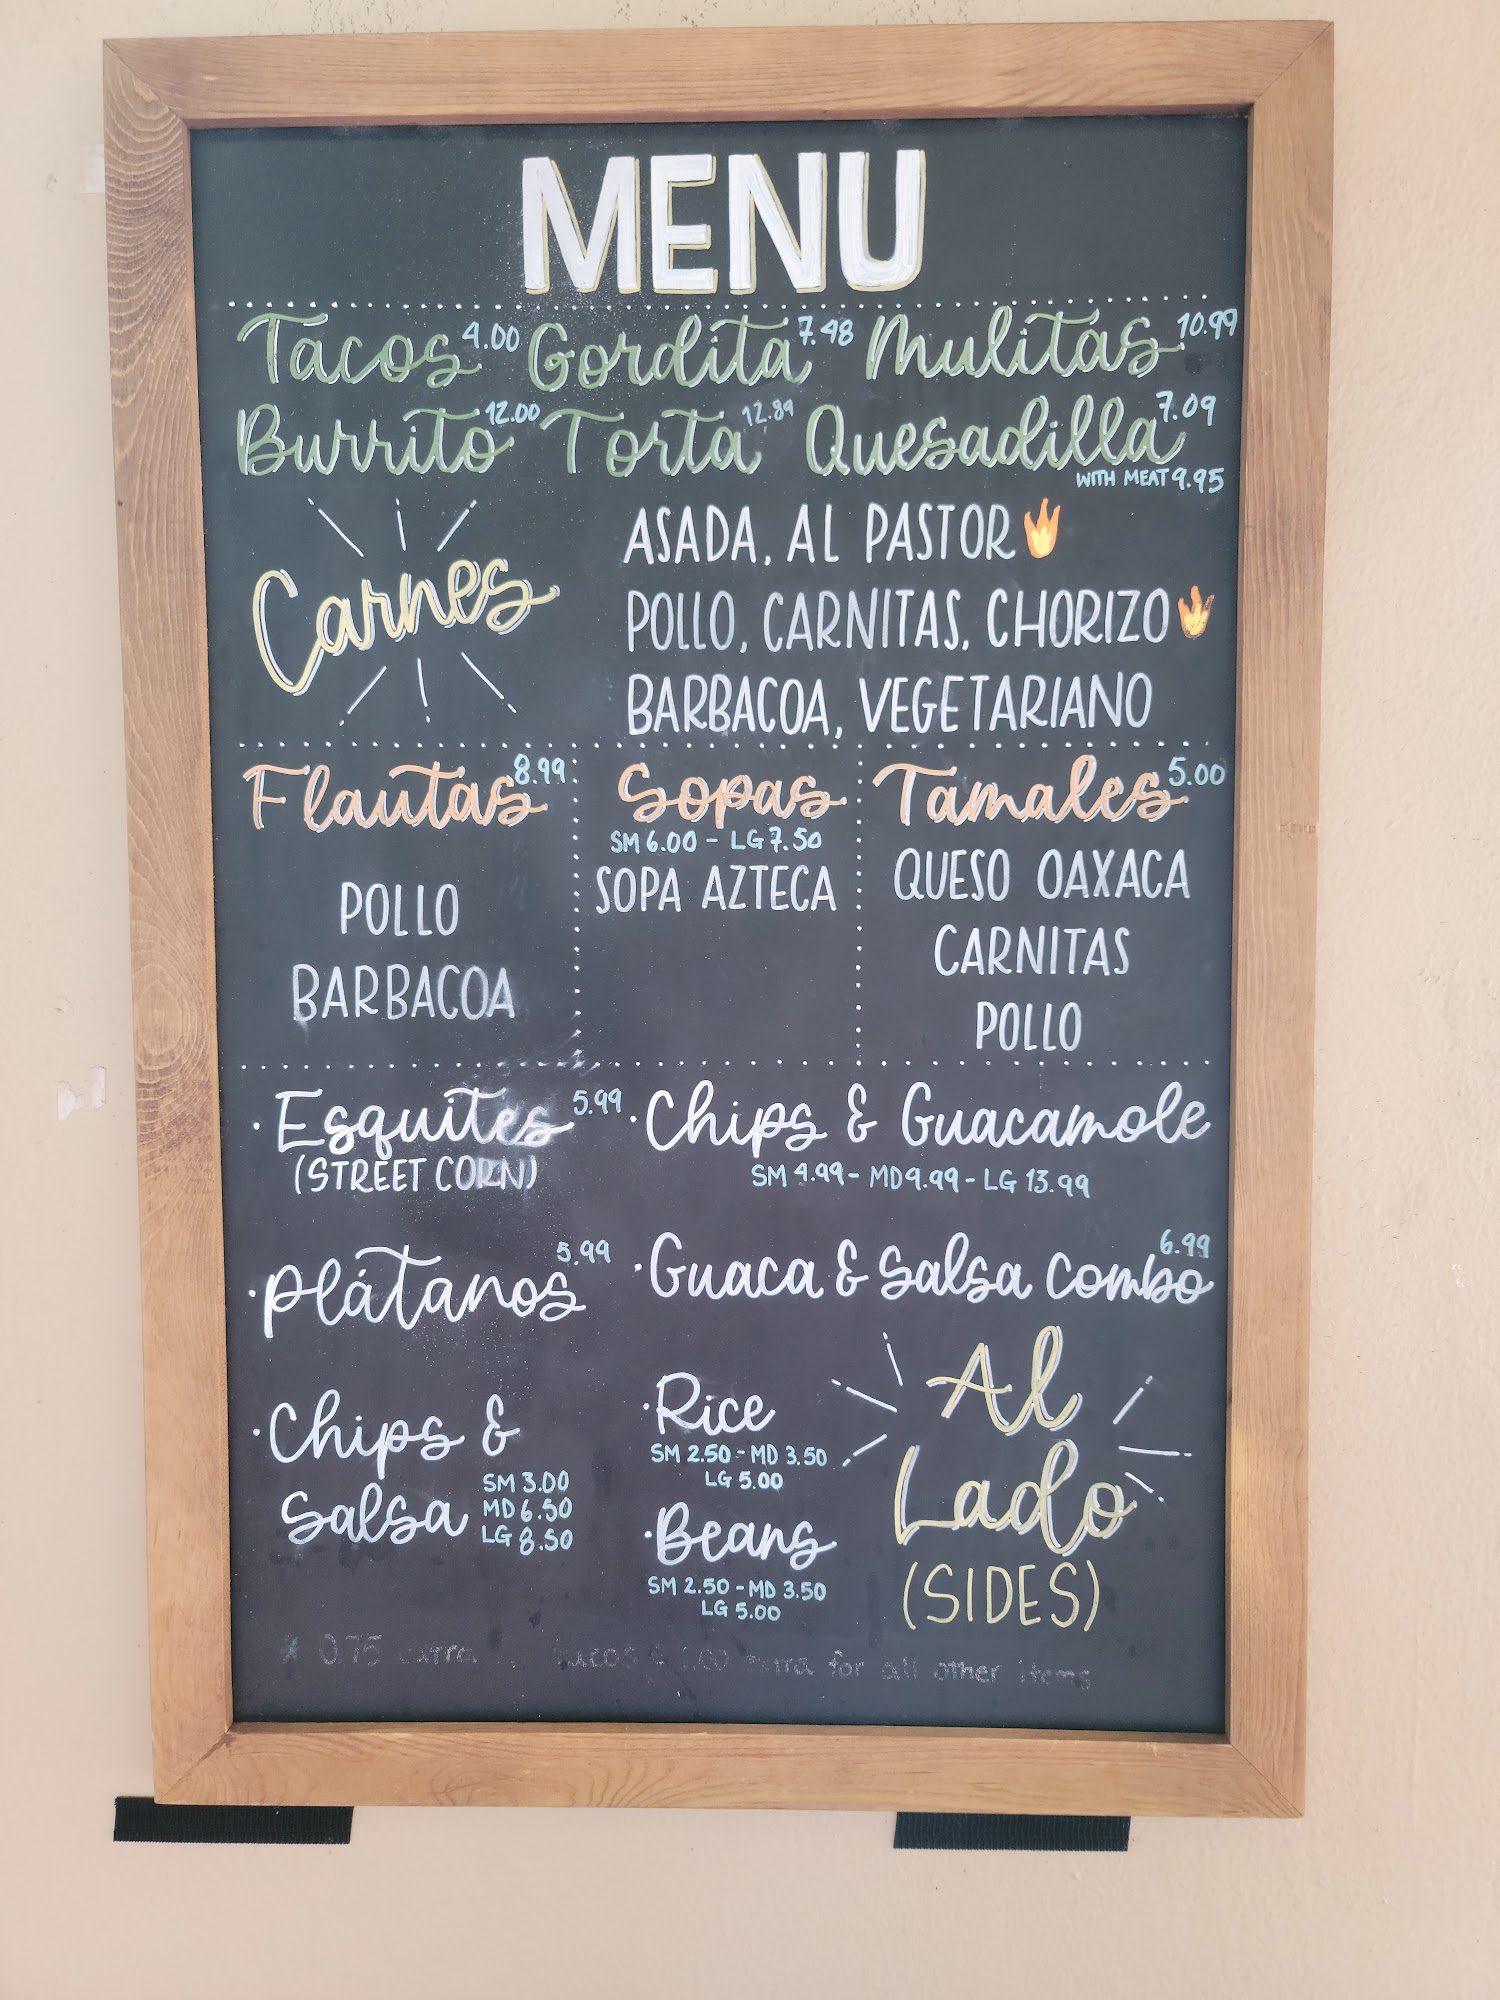 MENU
Tacos 4.00 Gordita 7.48 Mulitas 10.99
Burrito 12.00 Torta 12.89 Quesadilla 7.09
WITH MEAT 9.95
Carnes
ASADA, AL PASTOR
POLLO, CARNITAS, CHORIZO
BARBACOA, VEGETARIANO
Flautas 8.99
POLLO
BARBACOA
Sopas
SM 6.00 - LG 7.50
SOPA AZTECA
Tamales 5.00
QUESO OAXACA
CARNITAS
POLLO
· Esquites 5.99
(STREET CORN)
· Chips & Guacamole
SM 4.99 - MD 9.99 - LG 13.99
· Plátanos 5.99
· Guaca & Salsa Combo 6.99
· Chips &
Salsa
SM 3.00
MD 6.50
LG 8.50
· Rice
SM 2.50 - MD 3.50
LG 5.00
· Beans
SM 2.50 - MD 3.50
LG 5.00
Al
Lado
(SIDES)
* 0.75 extra tacos extra for all other items